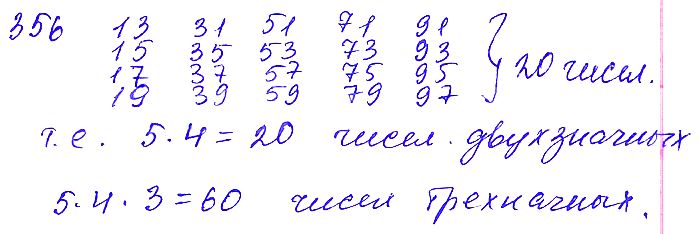 356 13 31 51 71 91
15 35 53 73 93
17 37 57 75 95 } 20 чисел.
19 39 59 79 97
т.е. 5·4=20 чисел двухзначных
5·4·3=60 чисел трехначных.